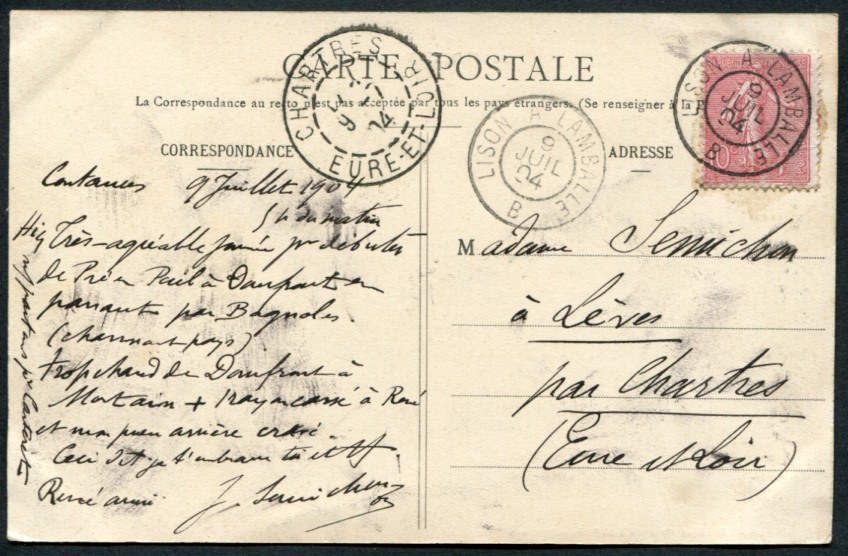 CARTE POSTALE
La Correspondance au recto n'est pas acceptée par tous les pays étrangers. (Se renseigner à la
CORRESPONDANCE
ADRESSE
CHARTRES
EURE-ET-LOIR
9
04
LISON A LAMBALLE
9
JUIL
04
B
LISON A LAMBALLE
9
JUIL
04
B
10
Coutances 9 Juillet 1904
5 h du matin
Très-agréable journée pr débuter
de Pré en Pail à Domfront en
passant par Bagnoles
(charmant pays)
Trop chaud de Domfront à
Mortain + 1 rayon cassé à René
et mon pneu arrière crevé.
Ceci dit je t'embrasse toi et
René aussi J. Semichon
ns partons pr Carteret
Madame Semichon
à Lèves
par Chartres
(Eure et Loir)